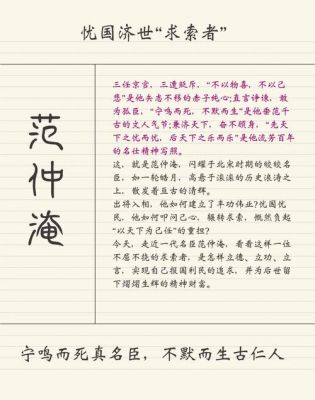 忧国济世“求索者”
范仲淹
三任京官,三遭贬斥,“不以物喜,不以己
悲”是他矢志不移的赤子纯心;直言诤谏,敢
为孤臣,“宁鸣而死,不默而生”是他垂范千
古的文人气节;兼济天下,奋不顾身,“先天
下之忧而忧,后天下之乐而乐”是他流芳百年
的名仕精神写照。
这,就是范仲淹,闪耀于北宋时期的皎皎名
臣,如一轮皓月,高悬于滚滚的历史浪涛之
上,散发着亘古的清辉。
出将入相,他如何建立了丰功伟业?忧国忧
民,他如何叩问己心,辗转求索,慨然负起
“以天下为己任”的重担?
今天,走近一代名臣范仲淹,看看这样一位
不屈不挠的求索者,是怎样立德、立功、立
言,实现自己报国利民的追求,并为后世留
下熠熠生辉的精神财富。
宁鸣而死真名臣,不默而生古仁人